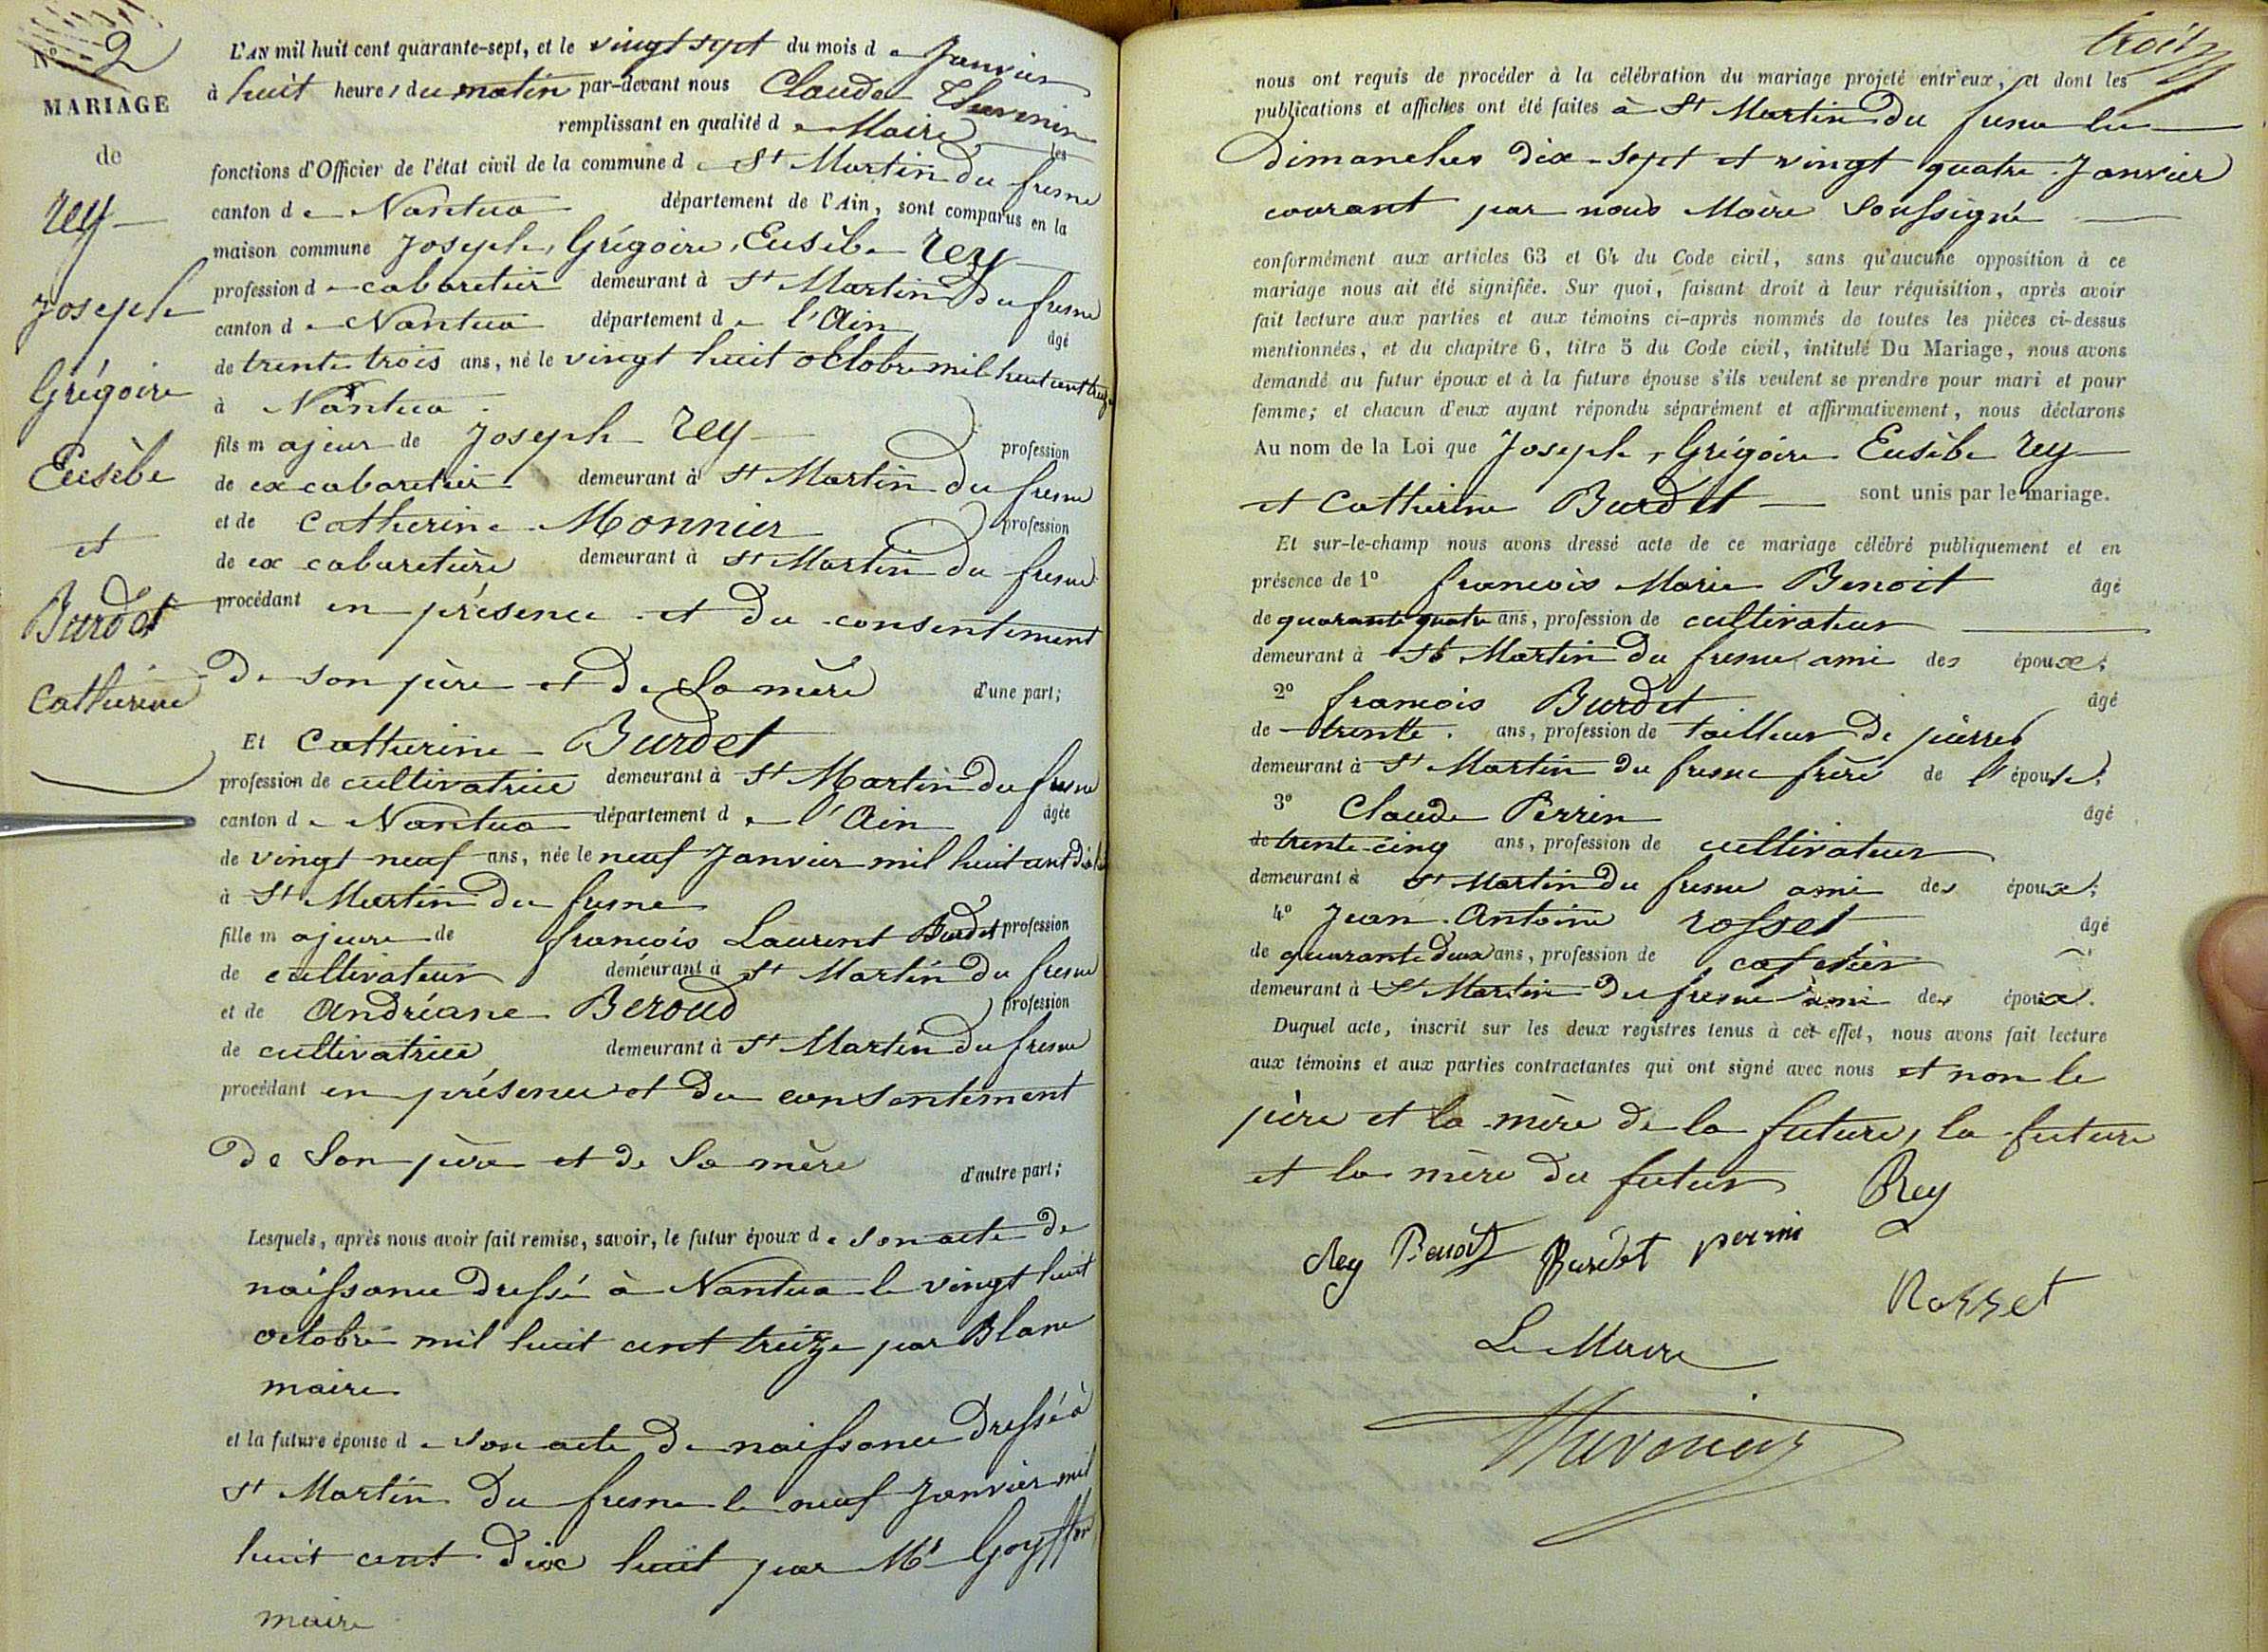 N° 2
MARIAGE
de
rey
Joseph
Grégoire
Eusèbe
et
Burdet
Catherine
L'AN mil huit cent quarante-sept, et le vingt sept du mois de Janvier
à huit heures du matin par-devant nous Claude Thevenin
remplissant en qualité de Maire les
fonctions d'Officier de l'état civil de la commune de St Martin du fresne
canton de Nantua département de l'Ain, sont comparus en la
maison commune Joseph, Grégoire, Eusèbe rey
profession de cabaretier demeurant à St Martin du fresne
canton de Nantua département de l'Ain âgé
de trente trois ans, né le vingt huit octobre mil huit cent treize
à Nantua
fils majeur de Joseph rey profession
de ex cabaretier demeurant à St Martin du fresne
et de Catherine Monnier profession
de ex cabaretière demeurant à St Martin du fresne
procédant en présence et du consentement
de son père et de sa mère d'une part;
Et Catherine Burdet
profession de cultivatrice demeurant à St Martin du fresne
canton de Nantua département de l'Ain âgée
de vingt neuf ans, née le neuf Janvier mil huit cent dix huit
à St Martin du fresne
fille majeure de françois Laurent Burdet profession
de cultivateur demeurant à St Martin du fresne
et de Andréane Beroud profession
de cultivatrice demeurant à St Martin du fresne
procédant en présence et du consentement
de son père et de sa mère d'autre part;
Lesquels, après nous avoir fait remise, savoir, le futur époux de son acte de
naissance dressé à Nantua le vingt huit
octobre mil huit cent treize par Blanc
maire
et la future épouse de son acte de naissance dressé à
St Martin du fresne le neuf Janvier mil
huit cent dix huit par Mr Goyffon
maire
trois
nous ont requis de procéder à la célébration du mariage projeté entr'eux, et dont les
publications et affiches ont été faites à St Martin du fresne les
dimanches dix-sept et vingt quatre Janvier
courant par nous Maire soussigné
conformément aux articles 63 et 64 du Code civil, sans qu'aucune opposition à ce
mariage nous ait été signifiée. Sur quoi, faisant droit à leur réquisition, après avoir
fait lecture aux parties et aux témoins ci-après nommés de toutes les pièces ci-dessus
mentionnées, et du chapitre 6, titre 5 du Code civil, intitulé Du Mariage, nous avons
demandé au futur époux et à la future épouse s'ils veulent se prendre pour mari et pour
femme; et chacun d'eux ayant répondu séparément et affirmativement, nous déclarons
Au nom de la Loi que Joseph, Grégoire Eusèbe rey
et Catherine Burdet sont unis par le mariage.
Et sur-le-champ nous avons dressé acte de ce mariage célébré publiquement et en
présence de 1° françois Marie Benoit âgé
de quarante quatre ans, profession de cultivateur
demeurant à St Martin du fresne ami des époux;
2° françois Burdet âgé
de trente ans, profession de tailleur de pierres
demeurant à St Martin du fresne frère de l'épouse;
3° Claude Perrin âgé
de trente-cinq ans, profession de cultivateur
demeurant à St Martin du fresne ami des époux;
4° Jean Antoine rosset âgé
de quarante deux ans, profession de cafetier
demeurant à St Martin du fresne ami des époux.
Duquel acte, inscrit sur les deux registres tenus à cet effet, nous avons fait lecture
aux témoins et aux parties contractantes qui ont signé avec nous et non le
père et la mère de la future, la future
et la mère du futur Rey
Rey Benoit Burdet perrin
Rosset
Le Maire
Thevenin